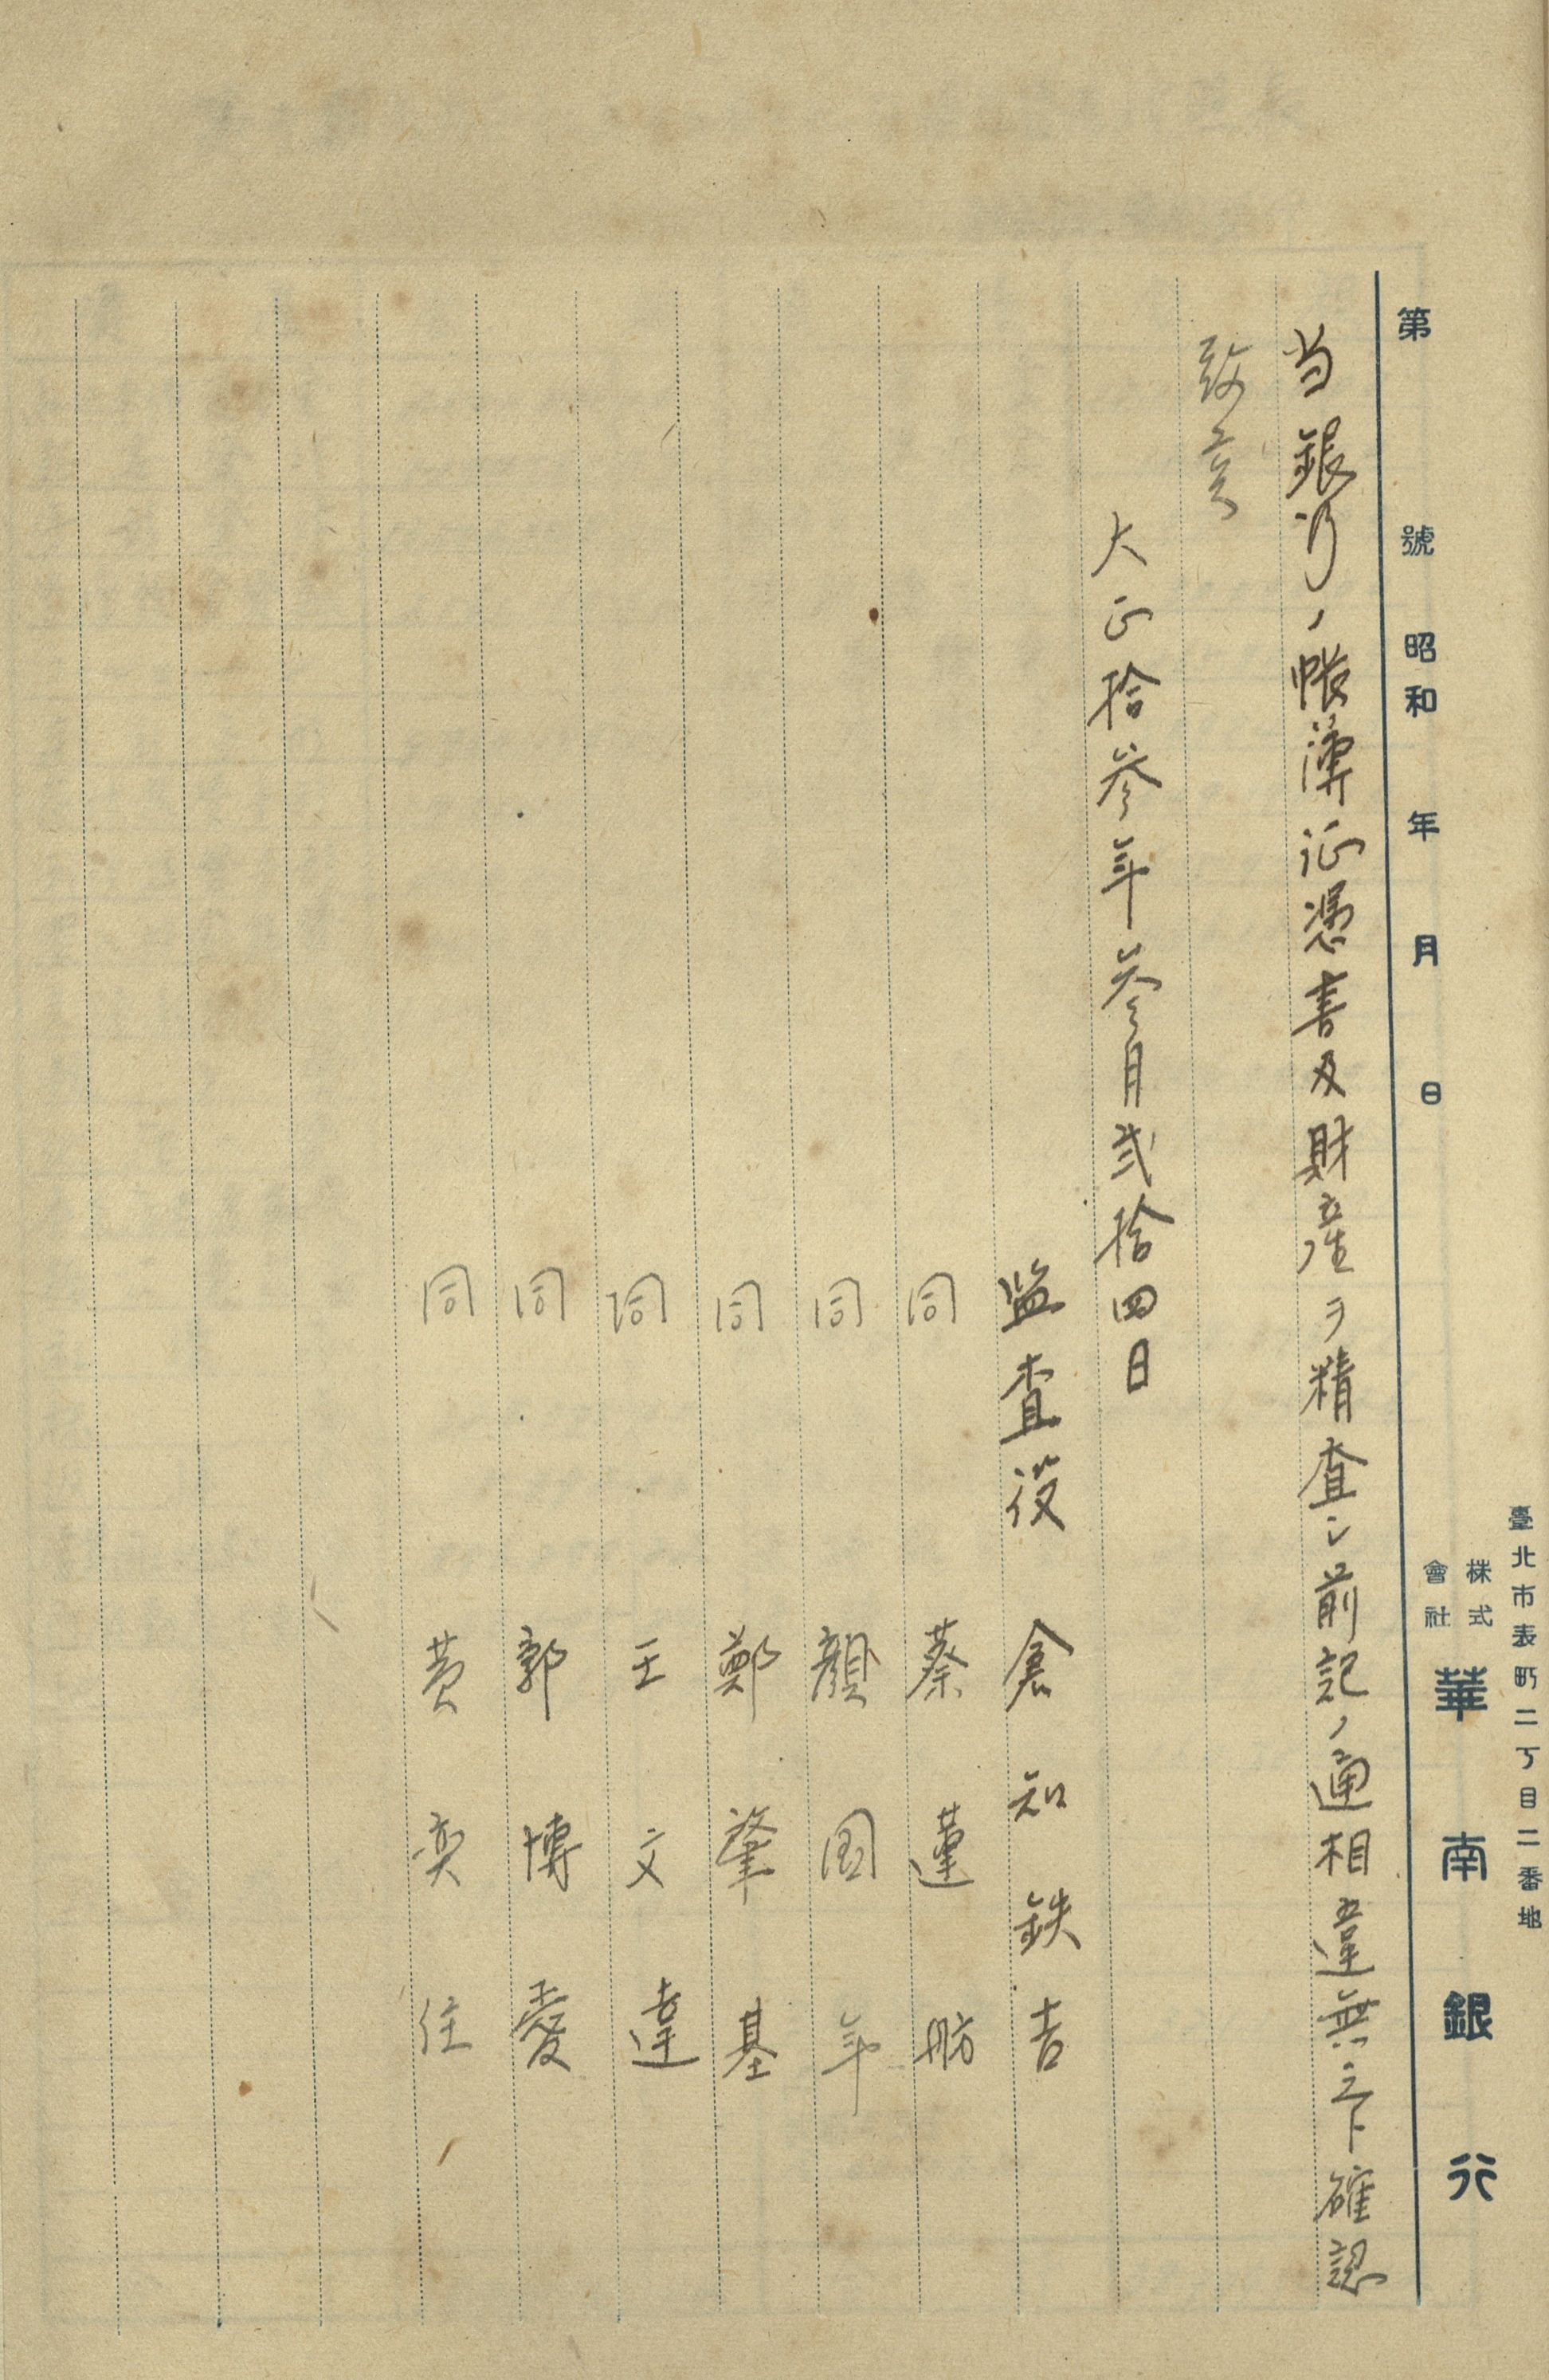 臺北市表町二丁目二番地
株式會社 華南銀行
第 號 昭和 年 月 日
当銀行ノ帳簿証憑書及財産ヲ精査シ前記ノ通相違無之ト確認
致候
大正拾参年参月弐拾四日
监査役 倉知鉄吉
同 蔡蓮舫
同 顔国年
同 鄭肇基
同 王文達
同 郭博愛
同 黄奕住